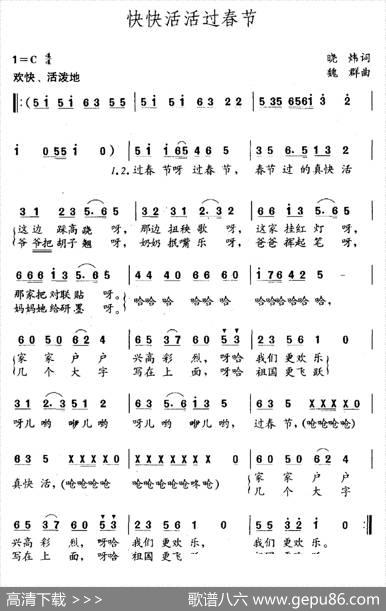 快快活活过春节
1=C 4/4
晓 炜词
欢快、活泼地
魏 群曲
‖:(5i 5i 63 55 | 5i 5i 63 55 | 535 6561 3 2 |
i 0551 0) | 5i i65 4 | 5i 65 5 | 335 6.513 2 |
1.2.过春 节呀 过春节, 春节 过 的真快 活
31 223 5.65 | 31 223 5 | 635 6.i3 5 |
这边 踩高跷 呀, 那边 扭秧歌 呀, 这家 挂红灯 呀,
爷爷把 胡子翘 呀, 奶奶 抿嘴乐 呀, 爸爸 挥起笔 呀,
666 i3 5.65 | 20 50 44 66 60 | i76425 |
那家把 对联贴 呀。 哈哈 哈哈 哈哈哈哈哈,
妈妈她 给研墨 呀。
60 50 62 4 | 65 37 60 53 | 22 02 1 0 |
家 家 户 户 兴高 彩 烈, 呀哈 我们 更欢乐
几 个 大 字 写在 上 面, 呀哈 祖国 更飞跃
31 2.3 31 2 | 63 5.6 31 2 | 63 5 XXXX |
呀儿 哟 咿儿 哟 呀儿 哟 咿儿 哟, 过春节, (呛呛呛呛)
63 5 XXXX | XXXX XX X 0 | 60 50 62 4 |
真快 活, (呛呛呛呛 呛呛呛呛呛咚呛) 家 家 户 户
几 个 大 字
65 37 60 53 | 22 02 1 0 | 02 02 1 0 ‖
兴高 彩 烈, 呀哈 我们 更欢乐。 我们 更欢 乐。
写在 上 面, 呀哈 祖国 更飞
高清下载 >>>
歌谱八六 www.gepu86.com